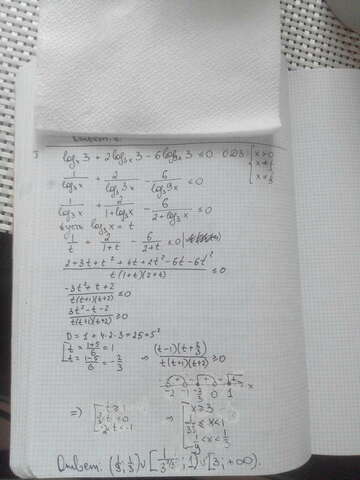 log_x 3 + 2log_{3x} 3 − 6log_{9x} 3 ≤ 0 ОДЗ: [x>0 x≠1
1/log_3x + 2/log_3 3x − 6/log_3 9x ≤ 0
1/log_3x + 2/(1+log_3x) − 6/(2+log_3x) ≤ 0
Пусть log_3x = t
1/t + 2/(1+t) − 6/(2+t) ≤ 0
(2+3t+t²+4t+2t²−6t−6t²)/(t(1+t)(2+t)) ≤ 0
(−3t²+t+2)/(t(t+1)(t+2)) ≤ 0
(3t²−t−2)/(t(t+1)(t+2)) ≥ 0
D = 1+4·2·3 = 25 = 5²
[t = (1+5)/6 = 1
t = (1−5)/6 = −2/3 ⇒ (t−1)(t+2/3)/(t(t+1)(t+2)) ≥ 0
−2 −1 −2/3 0 1
⇒ [t ≥ 1 ⇒ [x ≥ 3
Ответ: (1/9; 1/3) ∪ [1/3^{2/3}; 1) ∪ [3; +∞).